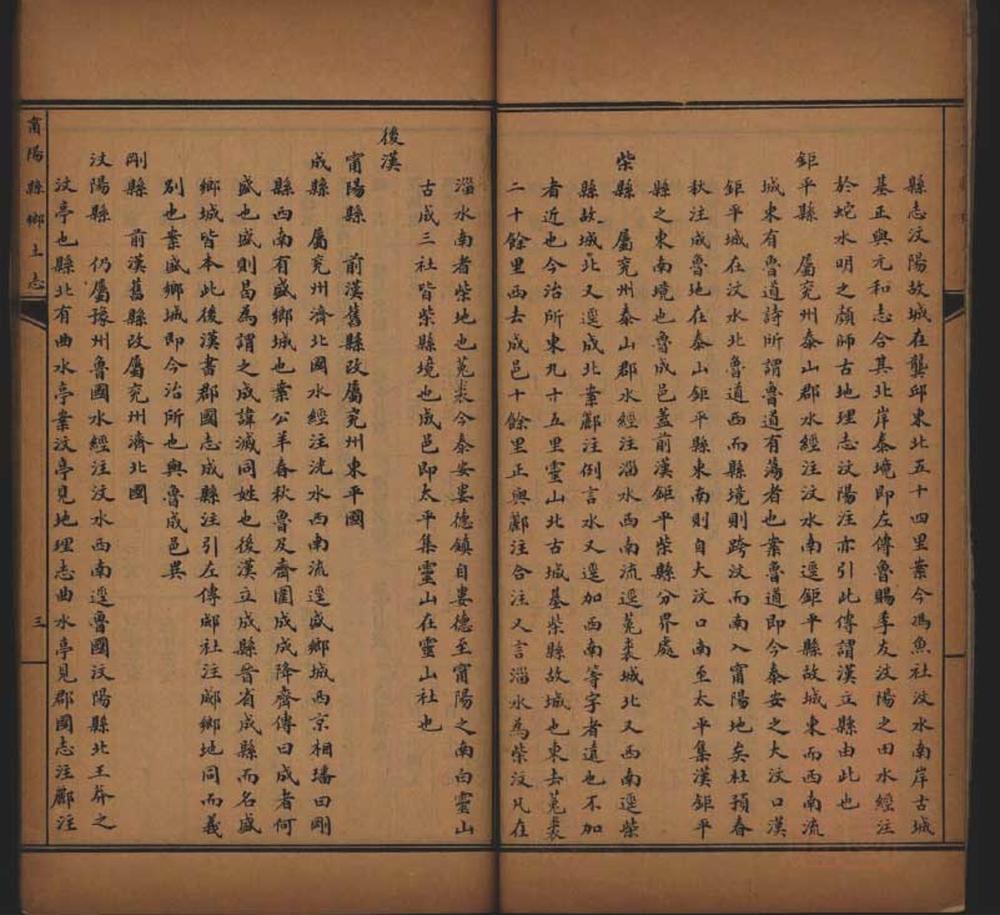 縣志汶陽故城在龔邱東北五十四里案今馮魚社汶水南岸古城
基正與元和志合其北岸泰境即左傳魯賜季友汶陽之田水經注
於蛇水明之顏師古地理志汶陽注亦引此傳謂漢立縣由此也
鉅平縣 屬兗州泰山郡水經注汶水南逕鉅平縣故城東而西南流
城東有魯道詩所謂魯道有蕩者也案魯道即今泰安之大汶口漢
鉅平城在汶水北魯道西而縣境則跨汶而南入甯陽地矣杜預春
秋注成魯地在泰山鉅平縣東南則自大汶口南至太平集漢鉅平
縣之東南境也魯成邑蓋前漢鉅平柴縣分界處
柴縣 屬兗州泰山郡水經注淄水西南流逕菟裘城北又西南逕柴
縣故城北又逕成北案酈注例言水又逕加西南等字者遠也不加
者近也今治所東九十五里靈山北古城基柴縣故城也東去菟裘
二十餘里西去成邑十餘里正與酈注合注又言淄水為柴汶凡在
淄水南者柴地也菟裘今泰安婁德鎮自婁德至甯陽之南白靈山
古成三社皆柴縣境也成邑即太平集靈山在靈山社也
後漢
甯陽縣 前漢舊縣改屬兗州東平國
成縣 屬兗州濟北國水經注洸水西南流逕盛鄉城西京相璠曰剛
縣西南有盛鄉城也案公羊春秋魯及齊圍成成降齊傳曰成者何
盛也盛則曷為謂之成諱滅同姓也後漢立成縣晉省成縣而名盛
鄉城皆本此後漢書郡國志成縣注引左傳郕社注郕鄉地同而義
別也案盛鄉城即今治所也與魯成邑異
剛縣 前漢舊縣改屬兗州濟北國
汶陽縣 仍屬豫州魯國水經注汶水西南逕魯國汶陽縣北王莽之
汶亭也縣北有曲水亭案汶亭見地理志曲水亭見郡國志注酈注
甯陽縣鄉土志
三